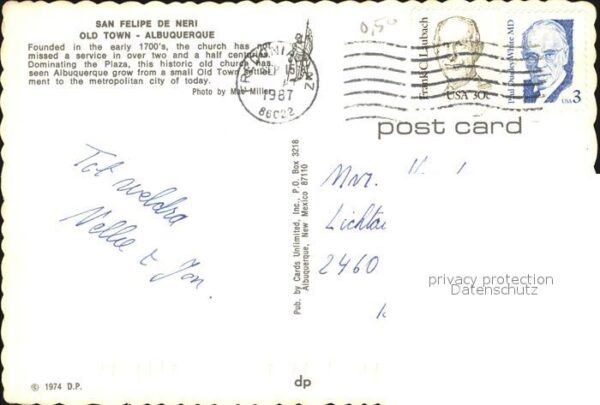 SAN FELIPE DE NERI
OLD TOWN - ALBUQUERQUE
Founded in the early 1700's, the church has not
missed a service in over two and a half centuries.
Dominating the Plaza, this historic old church has
seen Albuquerque grow from a small Old Town
ment to the metropolitan city of today.
Photo by Mel Miller
SEP 15
1987
86022
0,50
Frank C. Laubach
USA 30c
Paul Dudley White MD
USA 3
post card
Tot weldra
Nellie & Jon.
Pub. by Cards Unlimited, Inc., P.O. Box 3218
Albuquerque, New Mexico 87110
Mvr.
Lichta
2460
privacy protection
Datenschutz
© 1974 D.P.
dp